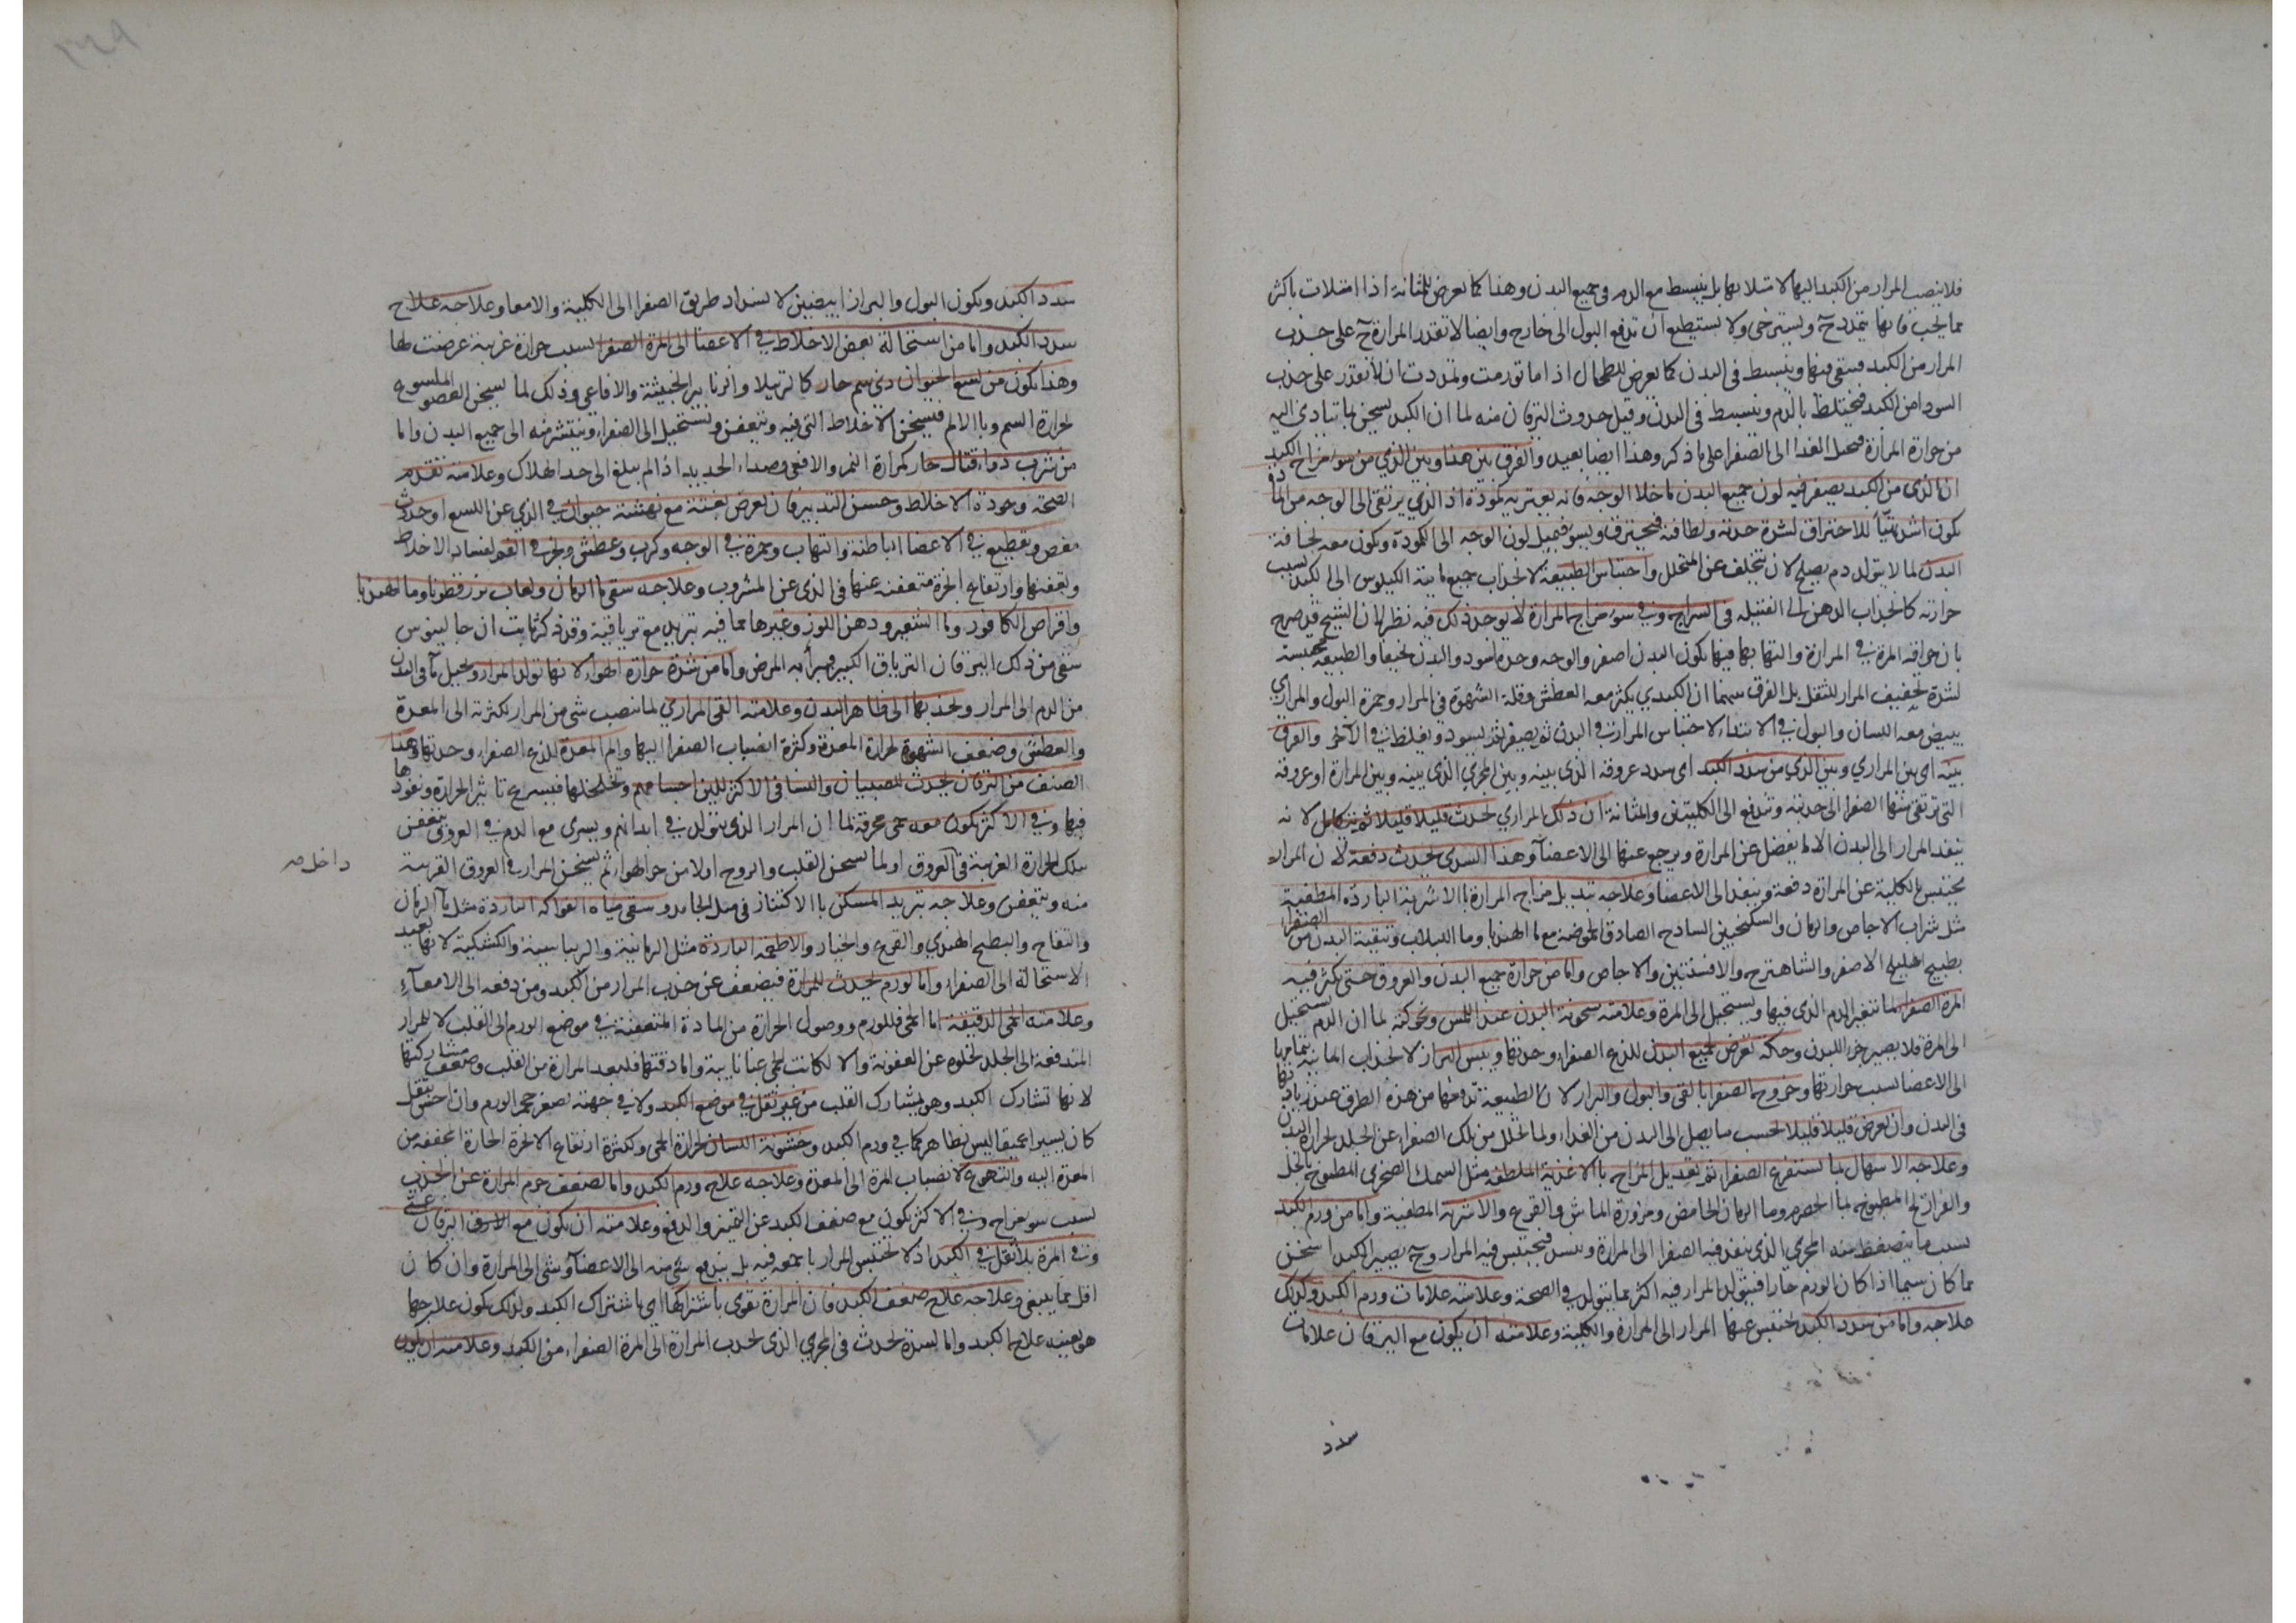 فلا ينصب المرار من الكبد اليها لامتلائها بل ينبسط مع الدم في جميع البدن وهذا كما يعرض للمثانة اذا امتلات باكثر
مما يجب فانها يتمدد ح ويسترخى ولا يستطيع ان تدفع البول الى خارج وايضا لا تقدر المرارة ح على جذب
المرار من الكبد فيبقى فيها وينبسط فى البدن كما يعرض للطحال اذا ما تورمت وتمددت ان لا تقدر على جذب
السودا من الكبد فيختلط بالدم وينبسط فى البدن وقيل حدوث اليرقان منه لما ان الكبد يسخن بما يتادى اليه
من حرارة المرارة فيحيل الغذا الى الصفرا على ما ذكر وهذا ايضا بعيد والفرق بين هذا وبين الذي من سوء مزاج الكبد
ان الذى من الكبد يصفر فيه لون جميع البدن ما خلا الوجه فانه يعتريه كمودة اذ الذي يرتقى الى الوجه من المادة
يكون اشد تهيأ للاحتراق لشدة حدته ولطافته فيحترق ويسود فيميل لون الوجه الى الكمودة ويكون معه نحافة
البدن لما لا يتولد دم يصلح لان يتخلف عن المتحلل واحتباس الطبيعة لانجذاب جميع مائية الكيلوس الى الكبد لسبب
حرارته كانجذاب الدهن الى الفتيلة فى السراج وفي سوء مزاج المرارة لا يوجد ذلك فيه نظر لان الشيخ قد صرح
بان حرافة المرة في المرارة والتهابها فيها يكون البدن اصفر والوجه وحده اسود والبدن نحيفا والطبيعة محتبسة
لشدة تجفيف المرار للثقل بل الفرق بينهما ان الكبدي يكثر معه العطش وقلة الشهوة فى المرار وحمرة البول والمراري
يبيض معه اللسان والبول في الابتداء لاحتباس المرار في البدن ثم يصفر ثم يسود ويغلظ في الآخر والفرق
بينه اى بين المراري وبين الذي من سدد الكبد اى سدد عروقه الذى بينه وبين المجرى الذي بينه وبين المرارة او عروقه
التى ترتقى منها الصفرا الى حدبته وتندفع الى الكليتين والمثانة ان ذلك المراري يحدث قليلا قليلا ثم يتكامل لانه
ينفذ المرار الى البدن الا لما يفضل عن المرارة ويرجع عنها الى الاعضآ وهذا السددى يحدث دفعة لان المرار
يحتبس بالكلية عن المرارة دفعة وينفذ الى الاعضا وعلاجه تبديل مزاج المرارة بالاشربة الباردة المطفية
مثل شراب الاجاص والرمان والسكنجبين الساذج الصادق الحموضة مع ما الهندبا وما اللبلاب وتنقية البدن من الصفرا
بطبيخ اهليلج الاصفر والشاهترج والافسنتين والاجاص واما من حرارة جميع البدن والعروق حتى يكثر فيه
المرة الصفرا لما يتغير الدم الذى فيها ويستحيل الى المرة وعلامته سخونة البدن عند اللمس وحكة لما ان الدم يستحيل
الى المرة فلا يصير جزء للبدن وحكة تعرض لجميع البدن للذع الصفراء وحدتها ويبس البراز لانجذاب المائية بتمامها
الى الاعضا لسبب حرارتها وخروج الصفرا بالقى والبول والبراز لان الطبيعة تدفعها من هذه الطرق عند زيادتها
فى البدن وان يعرض قليلا قليلا بحسب ما يصل الى البدن من الغذاء ولما تحلل من تلك الصفراء عن الجلد لحرارة البدن
وعلاجه الاسهال بما يستفرغ الصفرا ثم تعديل المزاج بالاغذية الملطفة مثل السمك الصخرى المطبوخ بالخل
والفراريج المطبوخة بما الحصرم وما الرمان الحامض ومزورة الماش والقرع والاشربة المطفية واما من ورم الكبد
بسبب ما ينضغط منه المجرى الذى ينفذ فيه الصفرا الى المرارة وينسد فيحتبس فيه المرار وح يصير الكبد اسخن
مما كان سيما اذا كان الورم حارا فيتولد المرار فيه اكثر مما يتولد في الصحة وعلامته علامات ورم الكبد وكذلك
علاجه واما من سدد الكبد يحتبس عنها المرار الى المرارة والكلية وعلامته ان يكون مع اليرقان علامات
سدد
سدد الكبد ويكون البول والبراز ابيضين لانسداد طريق الصفرا الى الكلية والامعا وعلاجه علاج
سدد الكبد واما من استحالة بعض الاخلاط في الاعضا الى المرة الصفرا بسبب حرارة غريبة عرضت لها
وهذا يكون من لسع الحيوان ذى سم حار كالرتيلا والزنابير الخبيثة والافاعى وذلك لما يسخن العضو الملسوع
لحرارة السم وبالالم فيسخن الاخلاط التى فيه وتتعفن ويستحيل الى الصفراء وينتشر منه الى جميع البدن واما
من شرب دواء قتال حار كمرارة النمر والافعى وصداء الحديد اذا لم يبلغ الى حد الهلاك وعلامته تقدم
الصحة وجودة الاخلاط وحسن التدبير فان يعرض بغتة مع نهشة حيوان في الذي عن اللسع او حدوث
مغص وتقطيع في الاعضا الباطنة والتهاب وحمرة في الوجه وكرب وعطش وبخر في الفم لفساد الاخلاط
وتعفنها وارتفاع ابخرة متعفنة عنها فى الذى عن المشروب وعلاجه سقى ما الرمان ولعاب بزر قطونا وما الهندبا
واقراص الكافور وما الشعير ودهن اللوز وغيرها مما فيه تبريد مع ترياقية وقد ذكر ثابت ان جالينوس
سقى من ذلك اليرقان الترياق الكبير فبرأ به المرض واما من شدة حرارة الهواء لانها تولد المرار ويحيل ما فى البدن
من الدم الى المرار ويجذبها الى ظاهر البدن وعلامته القى المراري لما ينصب شى من المرار لكثرته الى المعدة
والعطش وضعف الشهوة لحرارة المعدة وكثرة انصباب الصفرا اليها والم المعدة للذع الصفراء وحدتها وهذا
الصنف من اليرقان يحدث للصبيان والنسا فى الاكثر للين اجسامهم وتخلخلها فيسرع تاثير الحرارة ونفوذها
فيها وفي الاكثر يكون معه حمى محرقة لما ان المرار الذى يتولد في ابدانهم ويسرى مع الدم في العروق يتعفن
بتلك الحرارة الغريبة فى العروق او لما يسخن القلب والروح اولا من حر الهواء ثم يسخن المرار في العروق القريبة
داخل صح
منه ويتعفن وعلاجه تبريد المسكن بالاكتناز فى مثل الجامد وسقى مياه الفواكه الباردة مثل مآ الرمان
والتفاح والبطيخ الهندي والقرع والخيار والاطعمة الباردة مثل الرمانية والريباسية والكشكية لانها بعيد
الاستحالة الى الصفراء واما لورم يحدث للمرارة فيضعف عن جذب المرار من الكبد ومن دفعه الى الامعآء
وعلامته الحمى الدقيقة اما الحمى فللورم ووصول الحرارة من المادة المتعفنة في موضع الورم الى القلب لا للمرار
المتدفعة الى الجلد لخلوه عن العفونة والا لكانت الحمى غبا نايبة واما دقتها فلبعد المرارة من القلب وضعف مشاركتها
لانها تشارك الكبد وهو يشارك القلب من غير ثقل في موضع الكبد ولا في جهته لصغر حجم الورم وان احس بثقل
كان يسيرا عميقا ليس بظاهر كما في ورم الكبد وخشونة اللسان لحرارة الحمى وكثرة ارتفاع الابخرة الحارة العفنة من
المعدة اليه والتهوع لانصباب المرة الى المعدة وعلاجه علاج ورم الكبد واما لضعف جرم المرارة عن الجذب
لسبب سوء مزاج وفي الاكثر يكون مع ضعف الكبد عن التميز والدفع وعلامته ان يكون مع اليرقان غثى
وقى المرة بلا ثقل في الكبد اذ لا يحتبس المرار باجمعه فيه بل يندفع شى منه الى الاعضآ وشى الى المرارة وان كان
اقل مما ينبغى وعلاجه علاج ضعف الكبد فان المرارة تقوى باشتراكها اى باشتراك الكبد ولذلك يكون علاجها
هو بعينه علاج الكبد واما لسدة يحدث فى المجرى الذى لجذب المرارة الى المرة الصفراء من الكبد وعلامته ان يكون